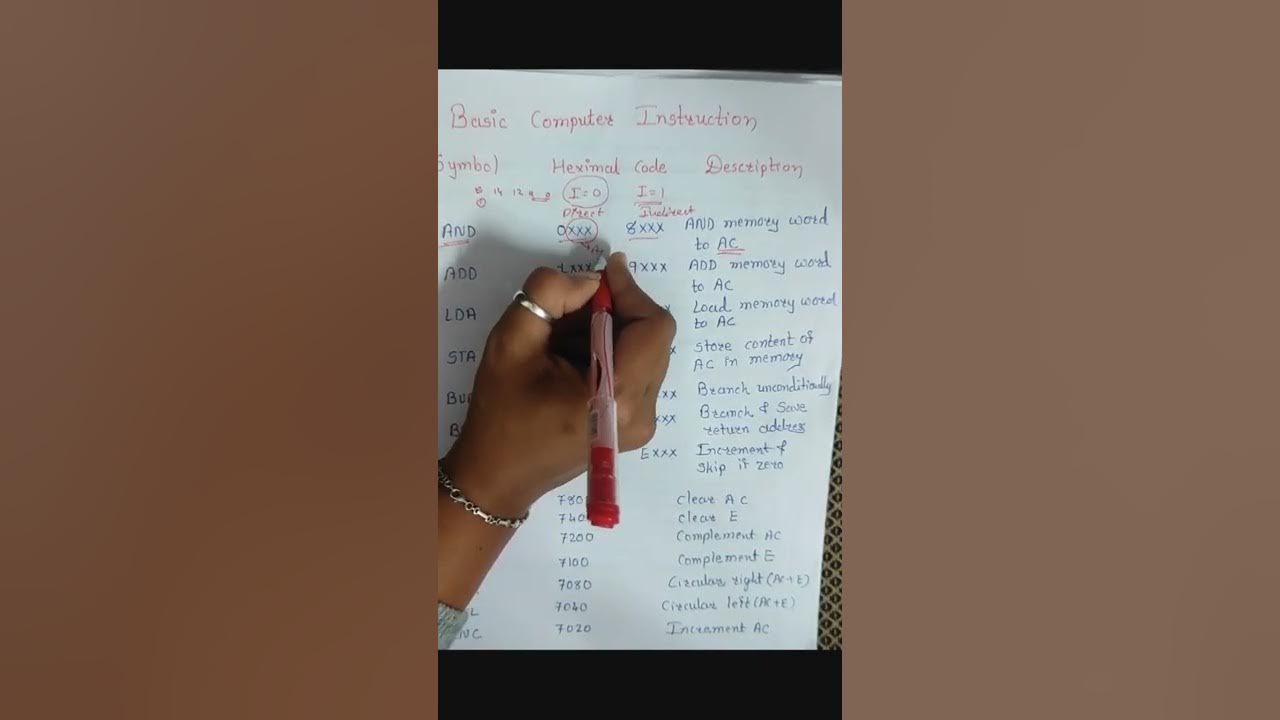 Basic Computer Instruction
Symbol Heximal Code Description
15 14 12 11 0 I=0 I=1
Direct Indirect
AND 0XXX 8XXX AND memory word
to AC
ADD 1XXX 9XXX ADD memory word
to AC
LDA Load memory word
to AC
STA Store content of
AC in memory
Branch unconditionally
Branch & Save
return address
EXXX Increment &
Skip if zero
780 Clear AC
740 Clear E
7200 Complement AC
7100 Complement E
7080 Circular right (AC+E)
7040 Circular left (AC+E)
7020 Increment AC